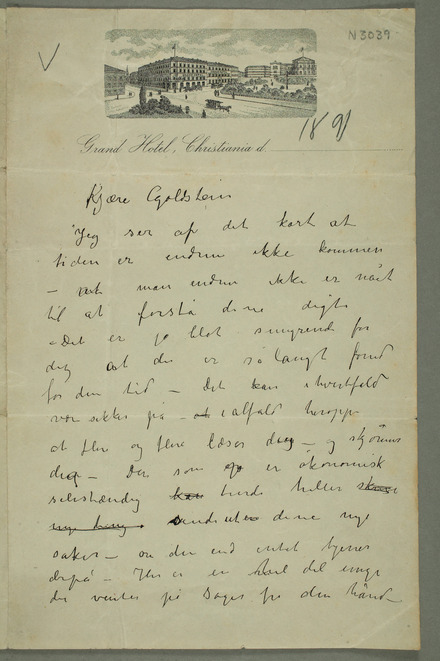 N 3039
Grand Hotel, Christiania d 1891
Kjære Goldstein
Jeg ser af dit kort at
tiden er endnu ikke kommen
– at man endnu ikke er nået
til at forstå dine digte
– Det er jo blot smigrende for
dig at du er så langt forud
for din tid – Det kan i hvertfald
være sikker på – at ialfald heroppe
at flere og flere læser dig – og skjønner
dig – Du som er økonomisk
selvstændig burde heller
sende ut dine nye
saker – om du end intet tjener
derpå – Her er en hel del unge
der venter på Sager fra din hånd